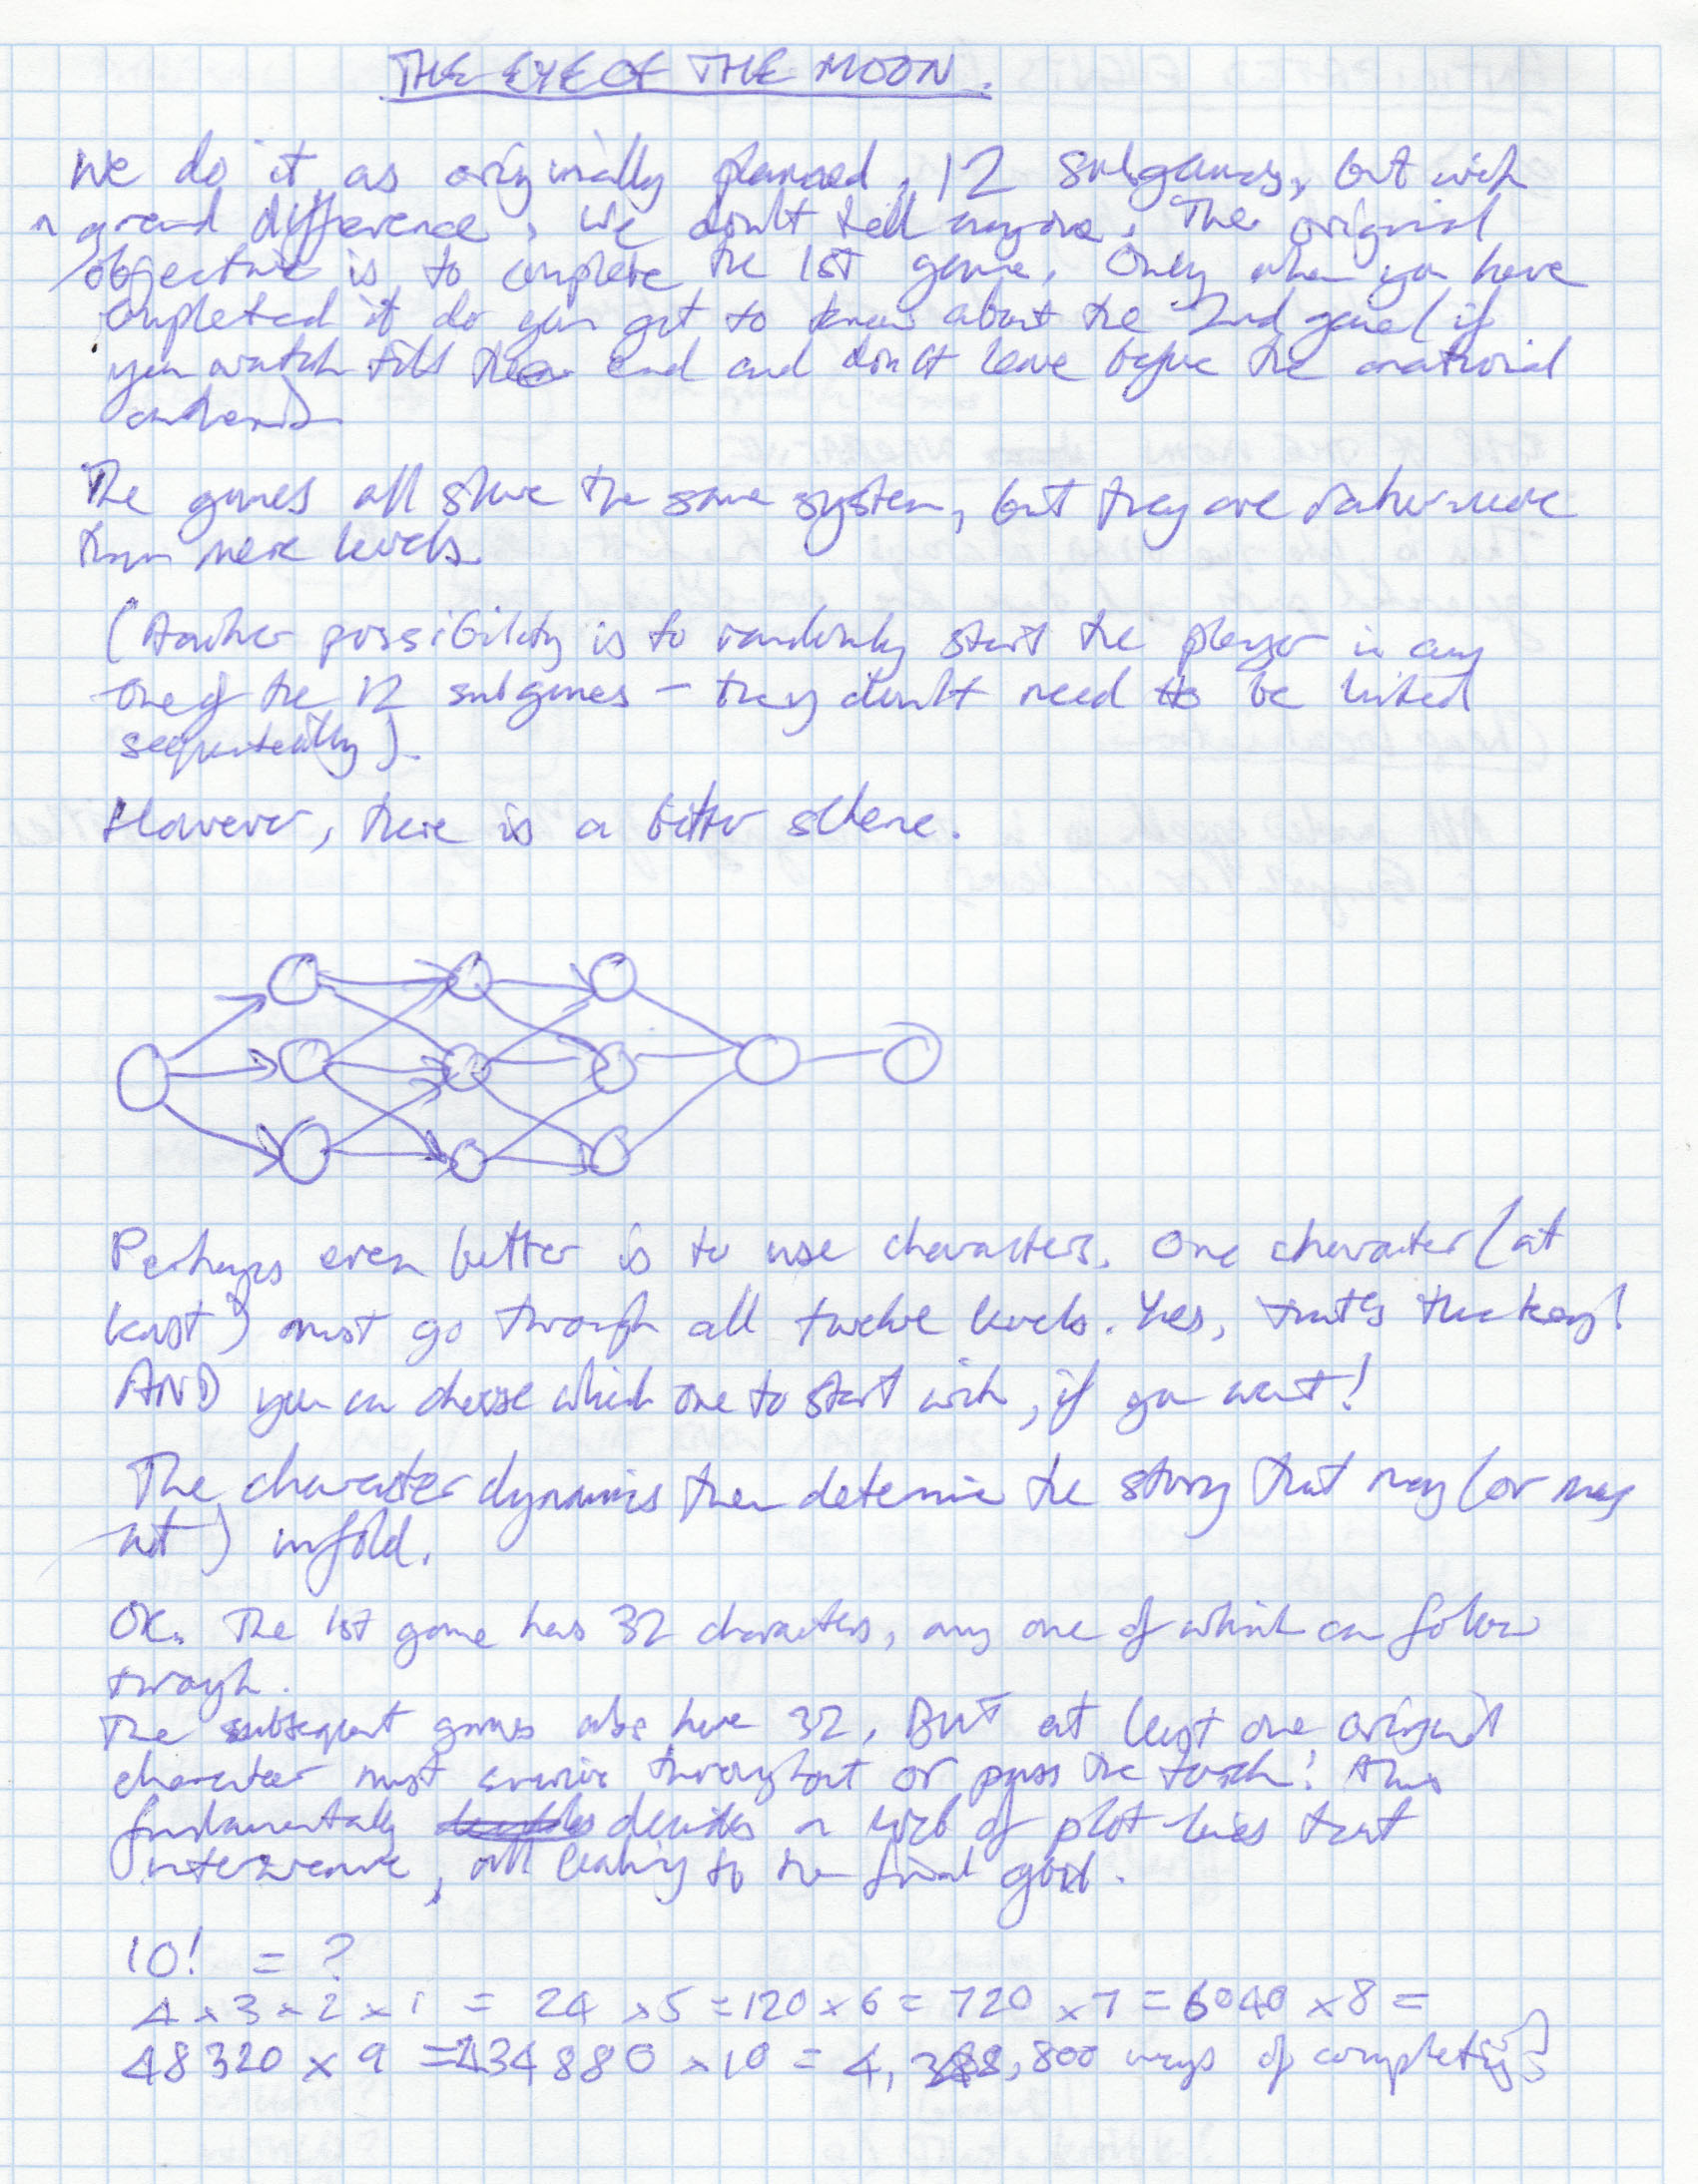 THE EYE OF THE MOON.
We do it as originally planned, 12 subgames, but with
a grand difference, we don't tell anyone. The original
objective is to complete the 1st game. Only when you have
completed it do you get to know about the 2nd game (if
you watch till the end and don't leave before the national
anthem).
The games all share the same system, but they are rather more
than mere levels.
(Another possibility is to randomly start the player in any
one of the 12 subgames – they don't need to be linked
sequentially).
However, there is a better scheme.
Perhaps even better is to use characters. One character (at
least) must go through all twelve levels. Yes, that's the key!
AND you can choose which one to start with, if you want!
The character dynamics then determine the story that may (or may
not) unfold.
OK. The 1st game has 32 characters, any one of which can follow
through.
The subsequent games also have 32, BUT at least one original
character must survive throughout or pass the torch! This
fundamentally decides a web of plot-lines that
interweave, all leading to the final goal.
10! = ?
4 x 3 x 2 x 1 = 24 x 5 = 120 x 6 = 720 x 7 = 6040 x 8 =
48320 x 9 = 434880 x 10 = 4,348,800 ways of completing